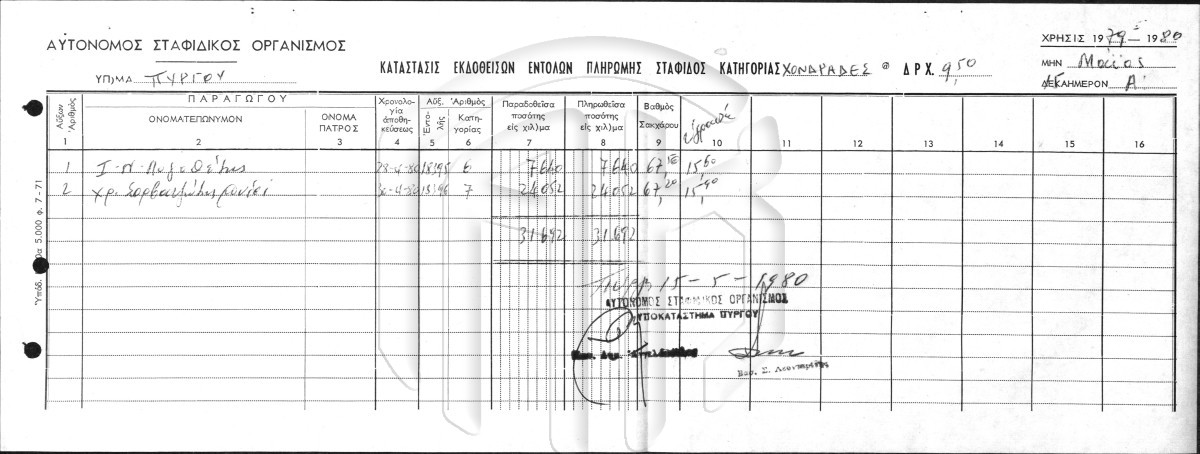 ΑΥΤΟΝΟΜΟΣ ΣΤΑΦΙΔΙΚΟΣ ΟΡΓΑΝΙΣΜΟΣ
ΥΠ)ΜΑ ΠΥΡΓΟΥ
ΚΑΤΑΣΤΑΣΙΣ ΕΚΔΟΘΕΙΣΩΝ ΕΝΤΟΛΩΝ ΠΛΗΡΩΜΗΣ ΣΤΑΦΙΔΟΣ ΚΑΤΗΓΟΡΙΑΣ ΧΟΝΔΡΑΔΕΣ @ ΔΡΧ. 9,50
ΧΡΗΣΙΣ 1979 – 1980
ΜΗΝ Μάϊος
ΔΕΚΑΗΜΕΡΟΝ Α'
Αὔξων Ἀριθμὸς
ΠΑΡΑΓΩΓΟΥ
ΟΝΟΜΑΤΕΠΩΝΥΜΟΝ
ΟΝΟΜΑ ΠΑΤΡΟΣ
Χρονολογία ἀποθηκεύσεως
Αὔξ. Ἀριθμὸς
Ἐντολῆς
Κατηγορίας
Παραδοθεῖσα ποσότης εἰς χιλ)μα
Πληρωθεῖσα ποσότης εἰς χιλ)μα
Βαθμὸς Σακχάρου
1 2 3 4 5 6 7 8 9 10 11 12 13 14 15 16
1 28-4-80 18195 6 7640 7640 67, 15,60
2 Χρ. 30-4-80 18196 7 24052 24052 67,20 15,90
31.692 31.692
15-5-1980
ΑΥΤΟΝΟΜΟΣ ΣΤΑΦΙΔΙΚΟΣ ΟΡΓΑΝΙΣΜΟΣ
ΥΠΟΚΑΤΑΣΤΗΜΑ ΠΥΡΓΟΥ
Ὑπόδ. 5.000 φ. 7-71